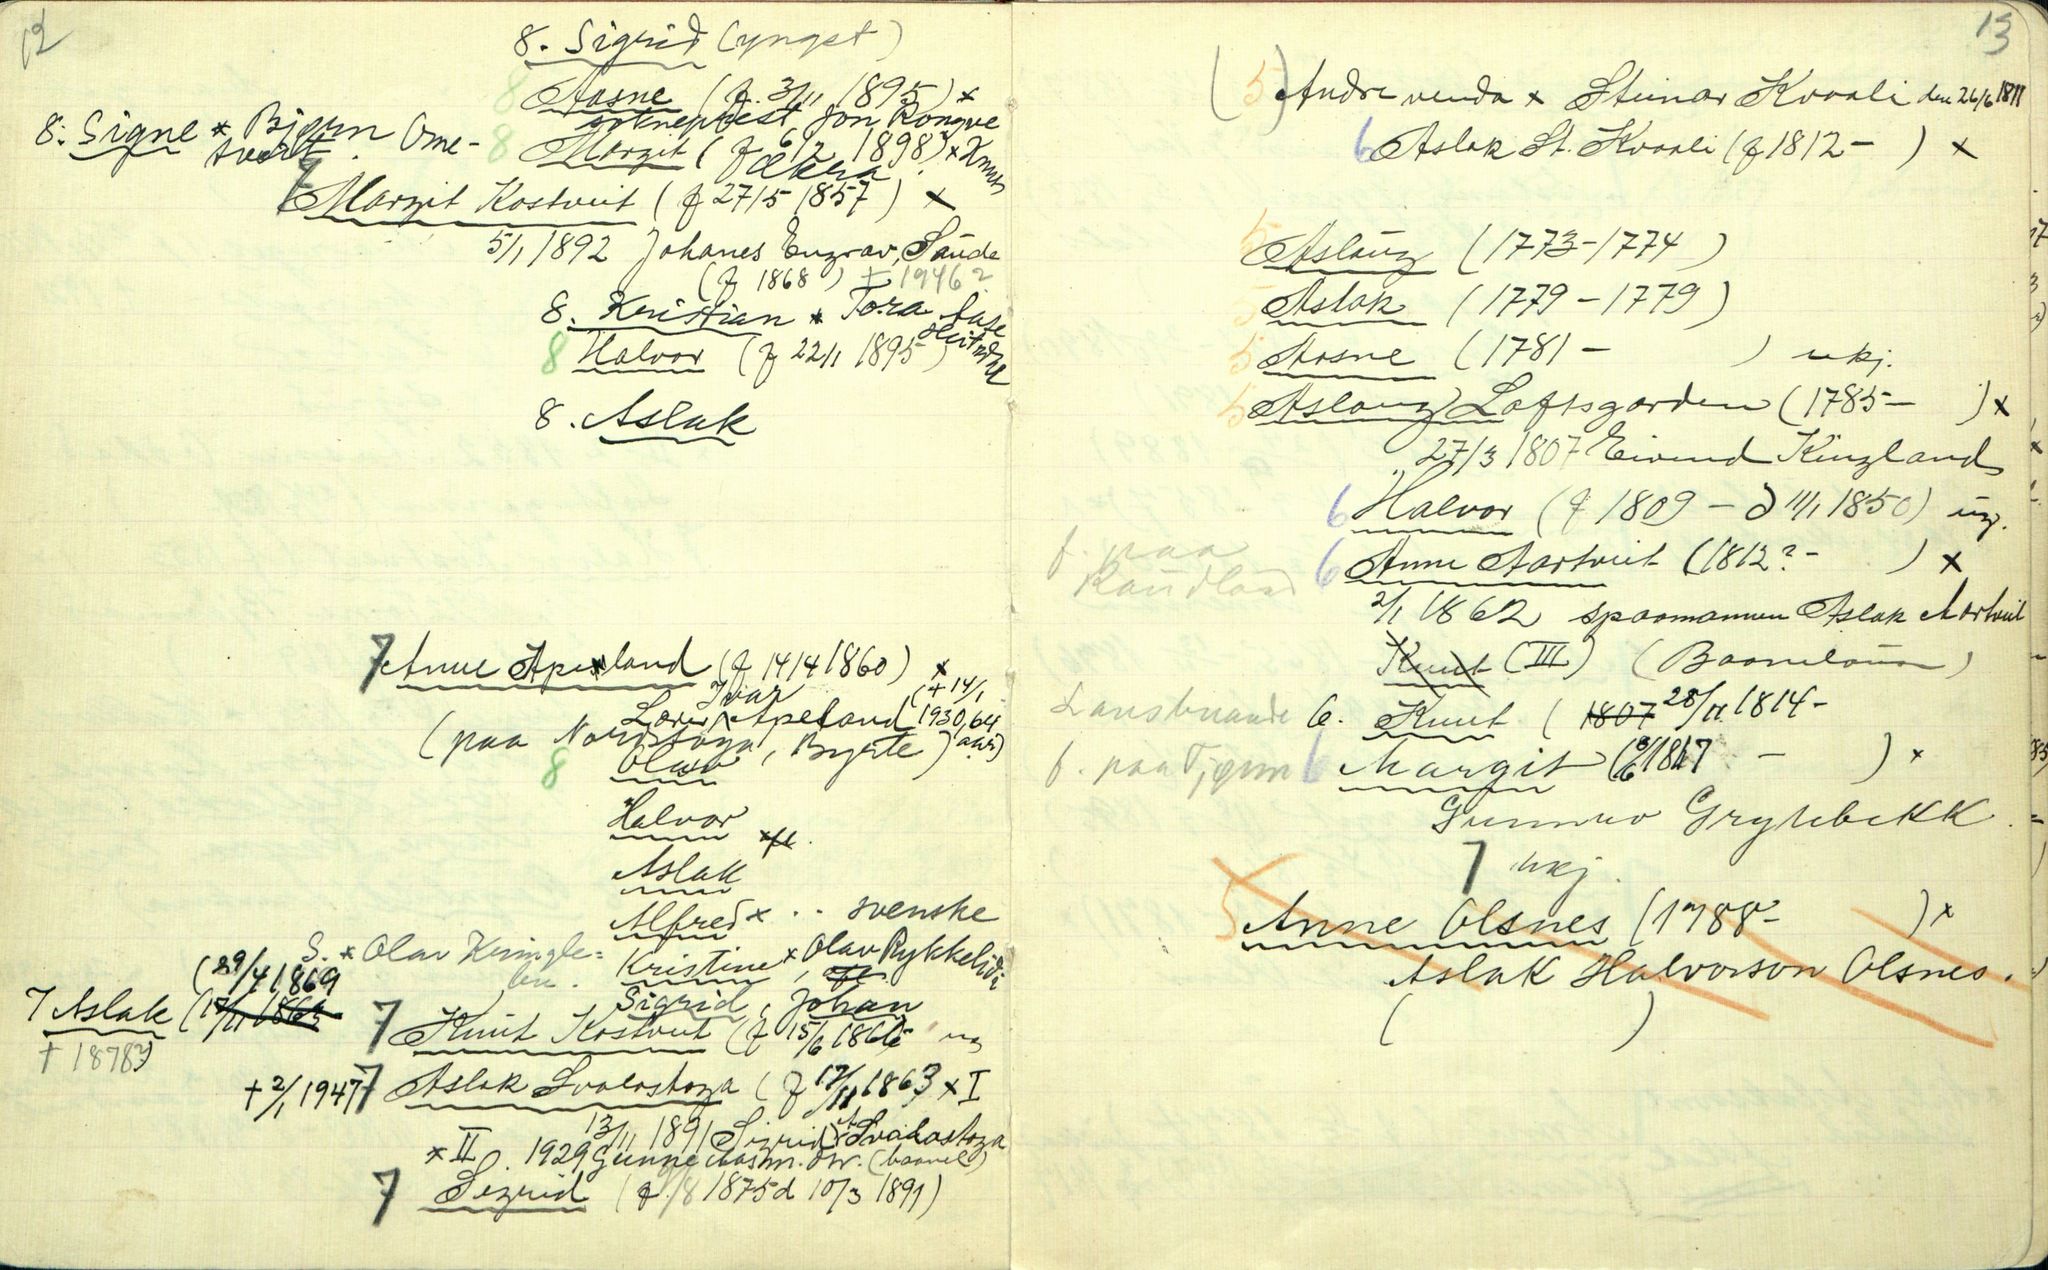 12
8. Sigrid (yngst)
8 Aasne (f. 3/11 1895) x
sokneprest Jon Rongve
8: Signe x Bjørn Ome-
tveit.
8 Margit (f 6/2 1898) x Knut
Økra
7 Margit Kostveit (f 27/5 1857) x
5/1 1892 Johanes Enggrav, Sauda
(f 1868) † 1946?
8. Kristian x Tora Aase
8 Halvor (f 22/1 1895)
8. Aslak
7 Anne Apeland (f 14/4 1860) x
Ivar († 14/1
Lars Apeland 1930, 64
(paa Nordstoga, Byrte) aar)
8 Olav
Halvor
Aslak
Alfred x .. svenske
S. x Olav Kringle=
Kristine x Olav Rykkelid
Sigrid, Johan
(29/4 1869
7 Aslak (17/11 1863
† 1878?)
7 Knut Kostveit (f 15/6 1866 ug
† 2/1 1947 7 Aslak Svalastoga (f 17/11 1863 x I
13/11 1891 Sigrid A. Svalastoga
x II. 1929 Gunne Aasm. dtr. (baanel)
7 Sigrid (f. 1/8 1875 d 10/3 1891)
13
(5) Andre venda x Steinar Kvaali den 26/6 1811
6 Aslak St. Kvaali (f 1812 - ) x
5 Aslaug (1773-1774)
5 Aslak (1779-1779)
5 Aasne (1781 - ) ukj.
5 Aslaug Loftsgarden (1785- ) x
27/3 1807 Eivind Kingland
6 Halvor (f 1809 - d 11/1 1850) ug.
f. paa
6 Anne Aartveit (1812? - ) x
2/1 1862 spaamannen Aslak Aartveit
Knut (III) (Baanlaus)
6. Knut (1807 28/11 1814-
f. paa 6 Margit (6/6 1817 - ) x
Gunnuv Grytebekk
7 ukj.
5 Anne Olsnes (1788- ) x
Aslak Halvorson Olsnes.
( )